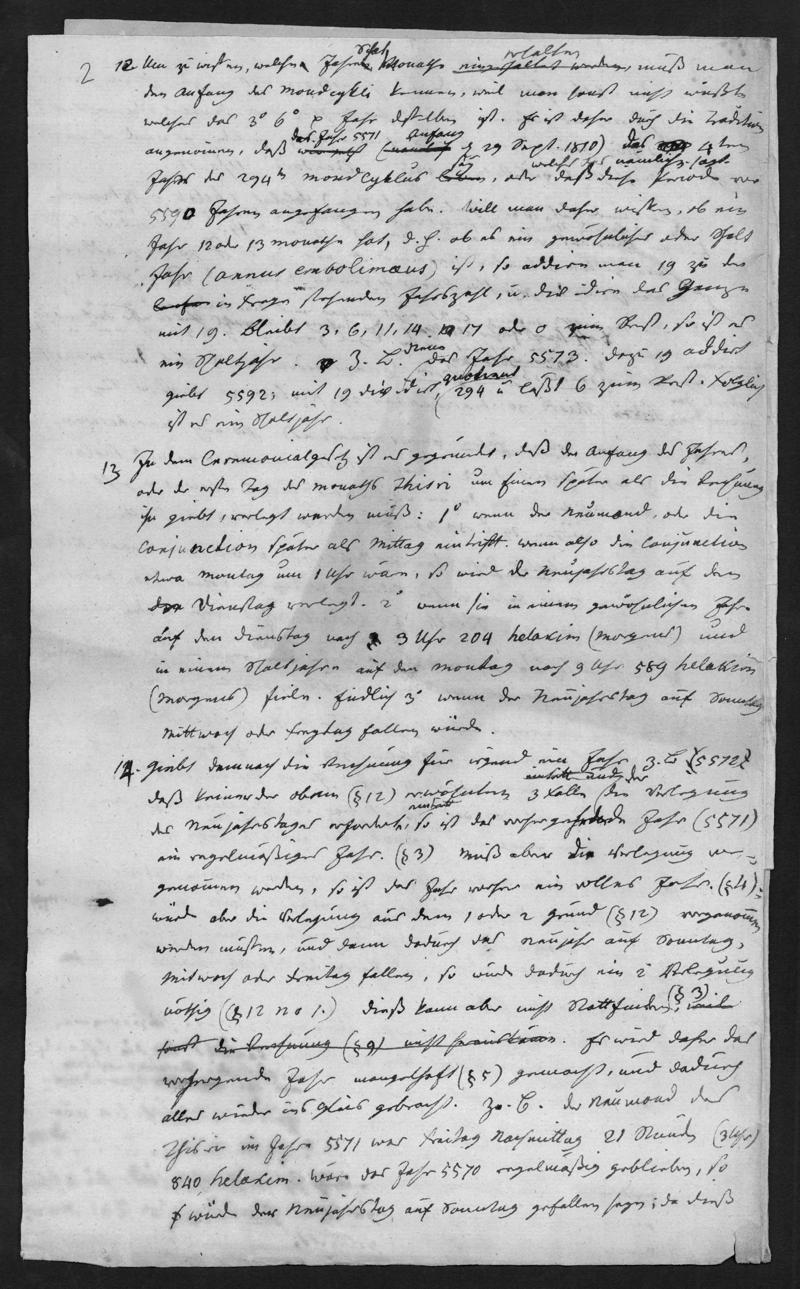 2
12 Um zu wissen, welche Jahre Schalt Monathe eingeschaltet werden, erhalten muß man
den Anfang des Mondcykli kennen, weil man sonst nicht wüßte
welches das 3° 6° Jahr desselben ist. Es ist daher durch die Tradition
angenommen, daß das Jahr 5571 (Anfang d 29 Sept. 1810) das 4ten
Jahr des 294th Mondcyklus sey, oder welches das nämlich sagt daß diese Periode vor
5590 Jahren angefangen habe. Will man daher wissen, ob ein
Jahr 12 oder 13 Monathe hat, d. h. ob es ein gewöhnliches oder Schalt
Jahr (annus embolimæus) ist, so addire man 19 zu der
in Frage stehenden Jahreszahl, u. dividire das Ganze
mit 19. Bleibt 3, 6, 11, 14, 17 oder 0 zum Rest, so ist es
ein Schaltjahr. Z. B. das Jahr 5573. dazu 19 addirt
giebt 5592; mit 19 dividirt, quotient 294 u läßt 6 zum Rest. Folglich
ist es ein Schaltjahr.
13 In dem Ceremonialgesetz ist es gegründet, daß der Anfang des Jahres,
oder der erste Tag des Monaths Thisri um Einen später als die Rechnung
ihn giebt, verlegt werden muß: 1° wenn der Neumond, oder die
Conjunction später als Mittag eintrifft. wenn also die Conjunction
etwa Montag um 1 Uhr wäre, so wird der Neujahrstag auf den
Dienstag verlegt. 2° wenn sie in einem gewöhnlichen Jahre
auf den Dienstag nach 3 Uhr 204 helakim (Morgens) und
in einem Schaltjahre auf den Montag nach 9 Uhr 589 helakim
(Morgens) fiele. Endlich 3° wenn der Neujahrstag auf Sonntag
Mittwoch oder Freytag fallen würde.
14. Giebt demnach die Rechnung für irgend ein Jahr, z. B (5572)
daß keiner der obern (§ 12) erwähnten 3 Fälle eintritt und der die Verlegung
des Neujahrstages erforderte, so ist das vorhergehende Jahr (5571)
ein regelmäßiges Jahr. (§ 3) Muß aber die Verlegung vor-
genommen werden, so ist das Jahr vorher ein volles Jahr. (§ 4)
würde aber die Verlegung aus dem 1 oder 2 Grund (§ 12) vorgenommen
werden müssen, und dann dadurch das Neujahr auf Sonntag,
Mittwoch oder Freitag fallen, so würde dadurch ein 2 Verlegung
nöthig (§ 12 no 1.) dieß kann aber nicht Stattfinden (§ 3), weil
sonst die Rechnung (§ 9) nicht herauskäme. Es wird daher das
vorhergehende Jahr mangelhaft (§ 5) gemacht, und dadurch
alles wieder ins Gleis gebracht. Z. B. der Neumond des
Thisri im Jahre 5571 war Freitag Nachmittag 21 Stunde (3 Uhr)
840 helakim. wäre das Jahr 5570 regelmäßig geblieben, so
würde der Neujahrstag auf Sonntag gefallen seyn; da dieß